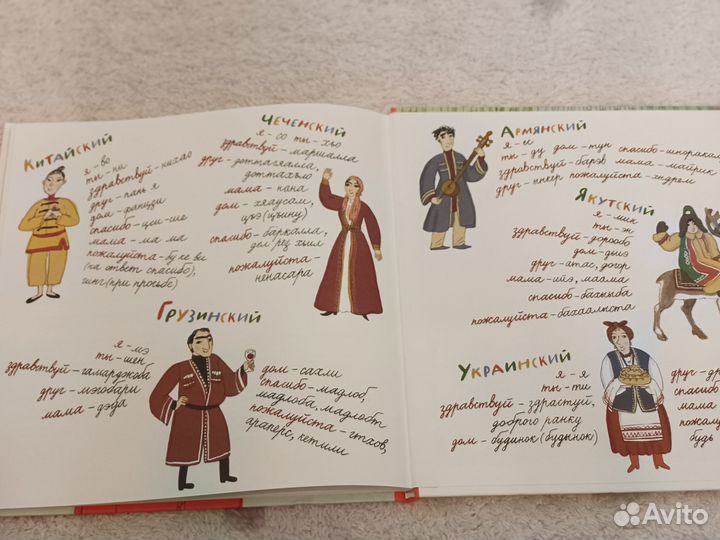 Китайский
я - во
ты - ни
здравствуй - нихао
друг - пань я
дом - фангзи
спасибо - цеи-ше
мама - ма ма
пожалуйста - бу ке ви
(на ответ спасибо),
цинг (при просьбе)
Чеченский
я - со ты - хьо
здравствуй - маршалла
друг - доттаггалла,
доттахью
мама - нана
дом - хяаусам,
црэ (цхину)
спасибо - баркалла,
дел рец хьил
пожалуйста -
ненасара
Грузинский
я - мэ
ты - шен
здравствуй - гамарджоба
друг - мэгобари
мама - дэда
дом - сахли
спасибо - мадлоб,
мадлоба, мадлобт
пожалуйста - гтхов,
араперс, кетили
Армянский
я - ес
ты - ду дом - тун спасибо - шноракал
здравствуй - барэв мама - майрик
друг - инкер пожалуйста - хндрем
Якутский
я - мин
ты - эн
здравствуй - дорообо
дом - диэ
друг - атас, догор
мама - ийэ, маама
спасибо - бахыыба
пожалуйста - бахаалыста
Украинский
я - я
ты - ти
здравствуй - здраствуй,
доброго ранку
дом - будинок (будынок)
друг - др
спасибо
мама
пожалу
будь
Avito